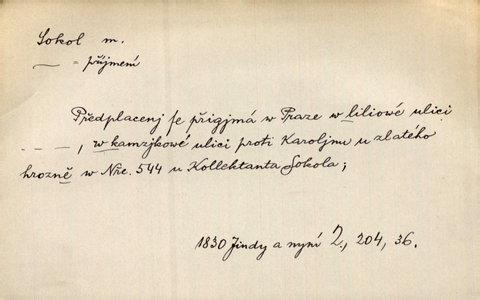 Sokol m.
— = příjmení
Předplacenj se přigjmá w Praze w liliowé ulici
– – – , w kamzjkowé ulici proti Karoljnu u zlatého
hrozně w Nře. 544 u Kollektanta Sokola;
1830 Jindy a nyní 2., 204, 36.